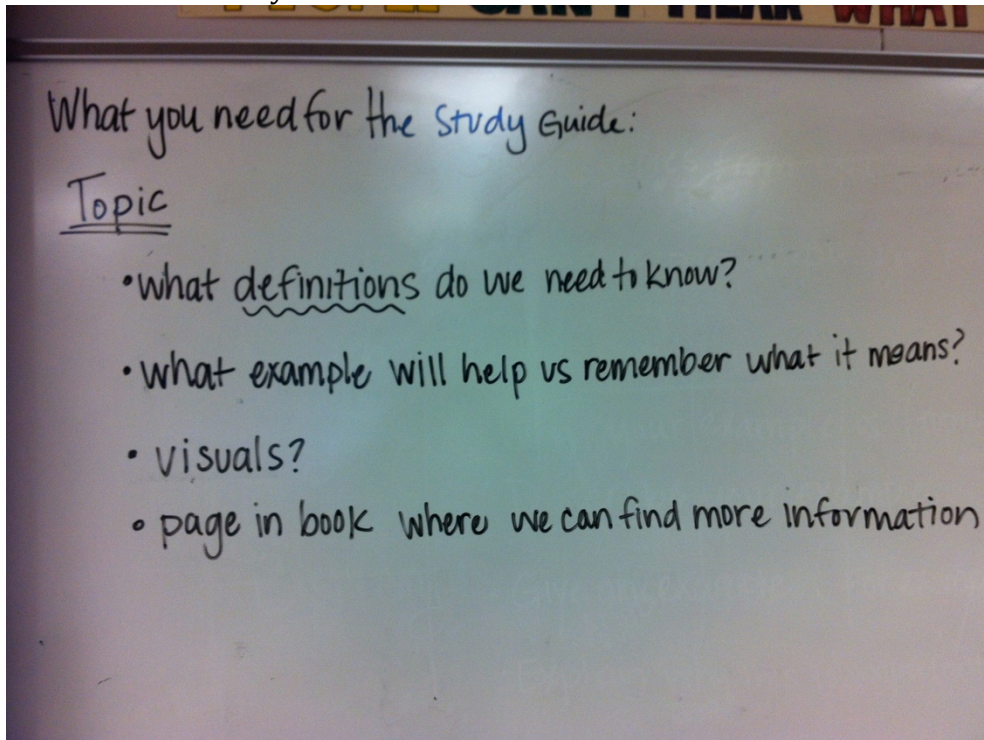 PEOPLE CAN'T HEAR WHAT
What you need for the Study Guide:
Topic
•what definitions do we need to know?
•what example will help us remember what it means?
• visuals?
• page in book where we can find more information